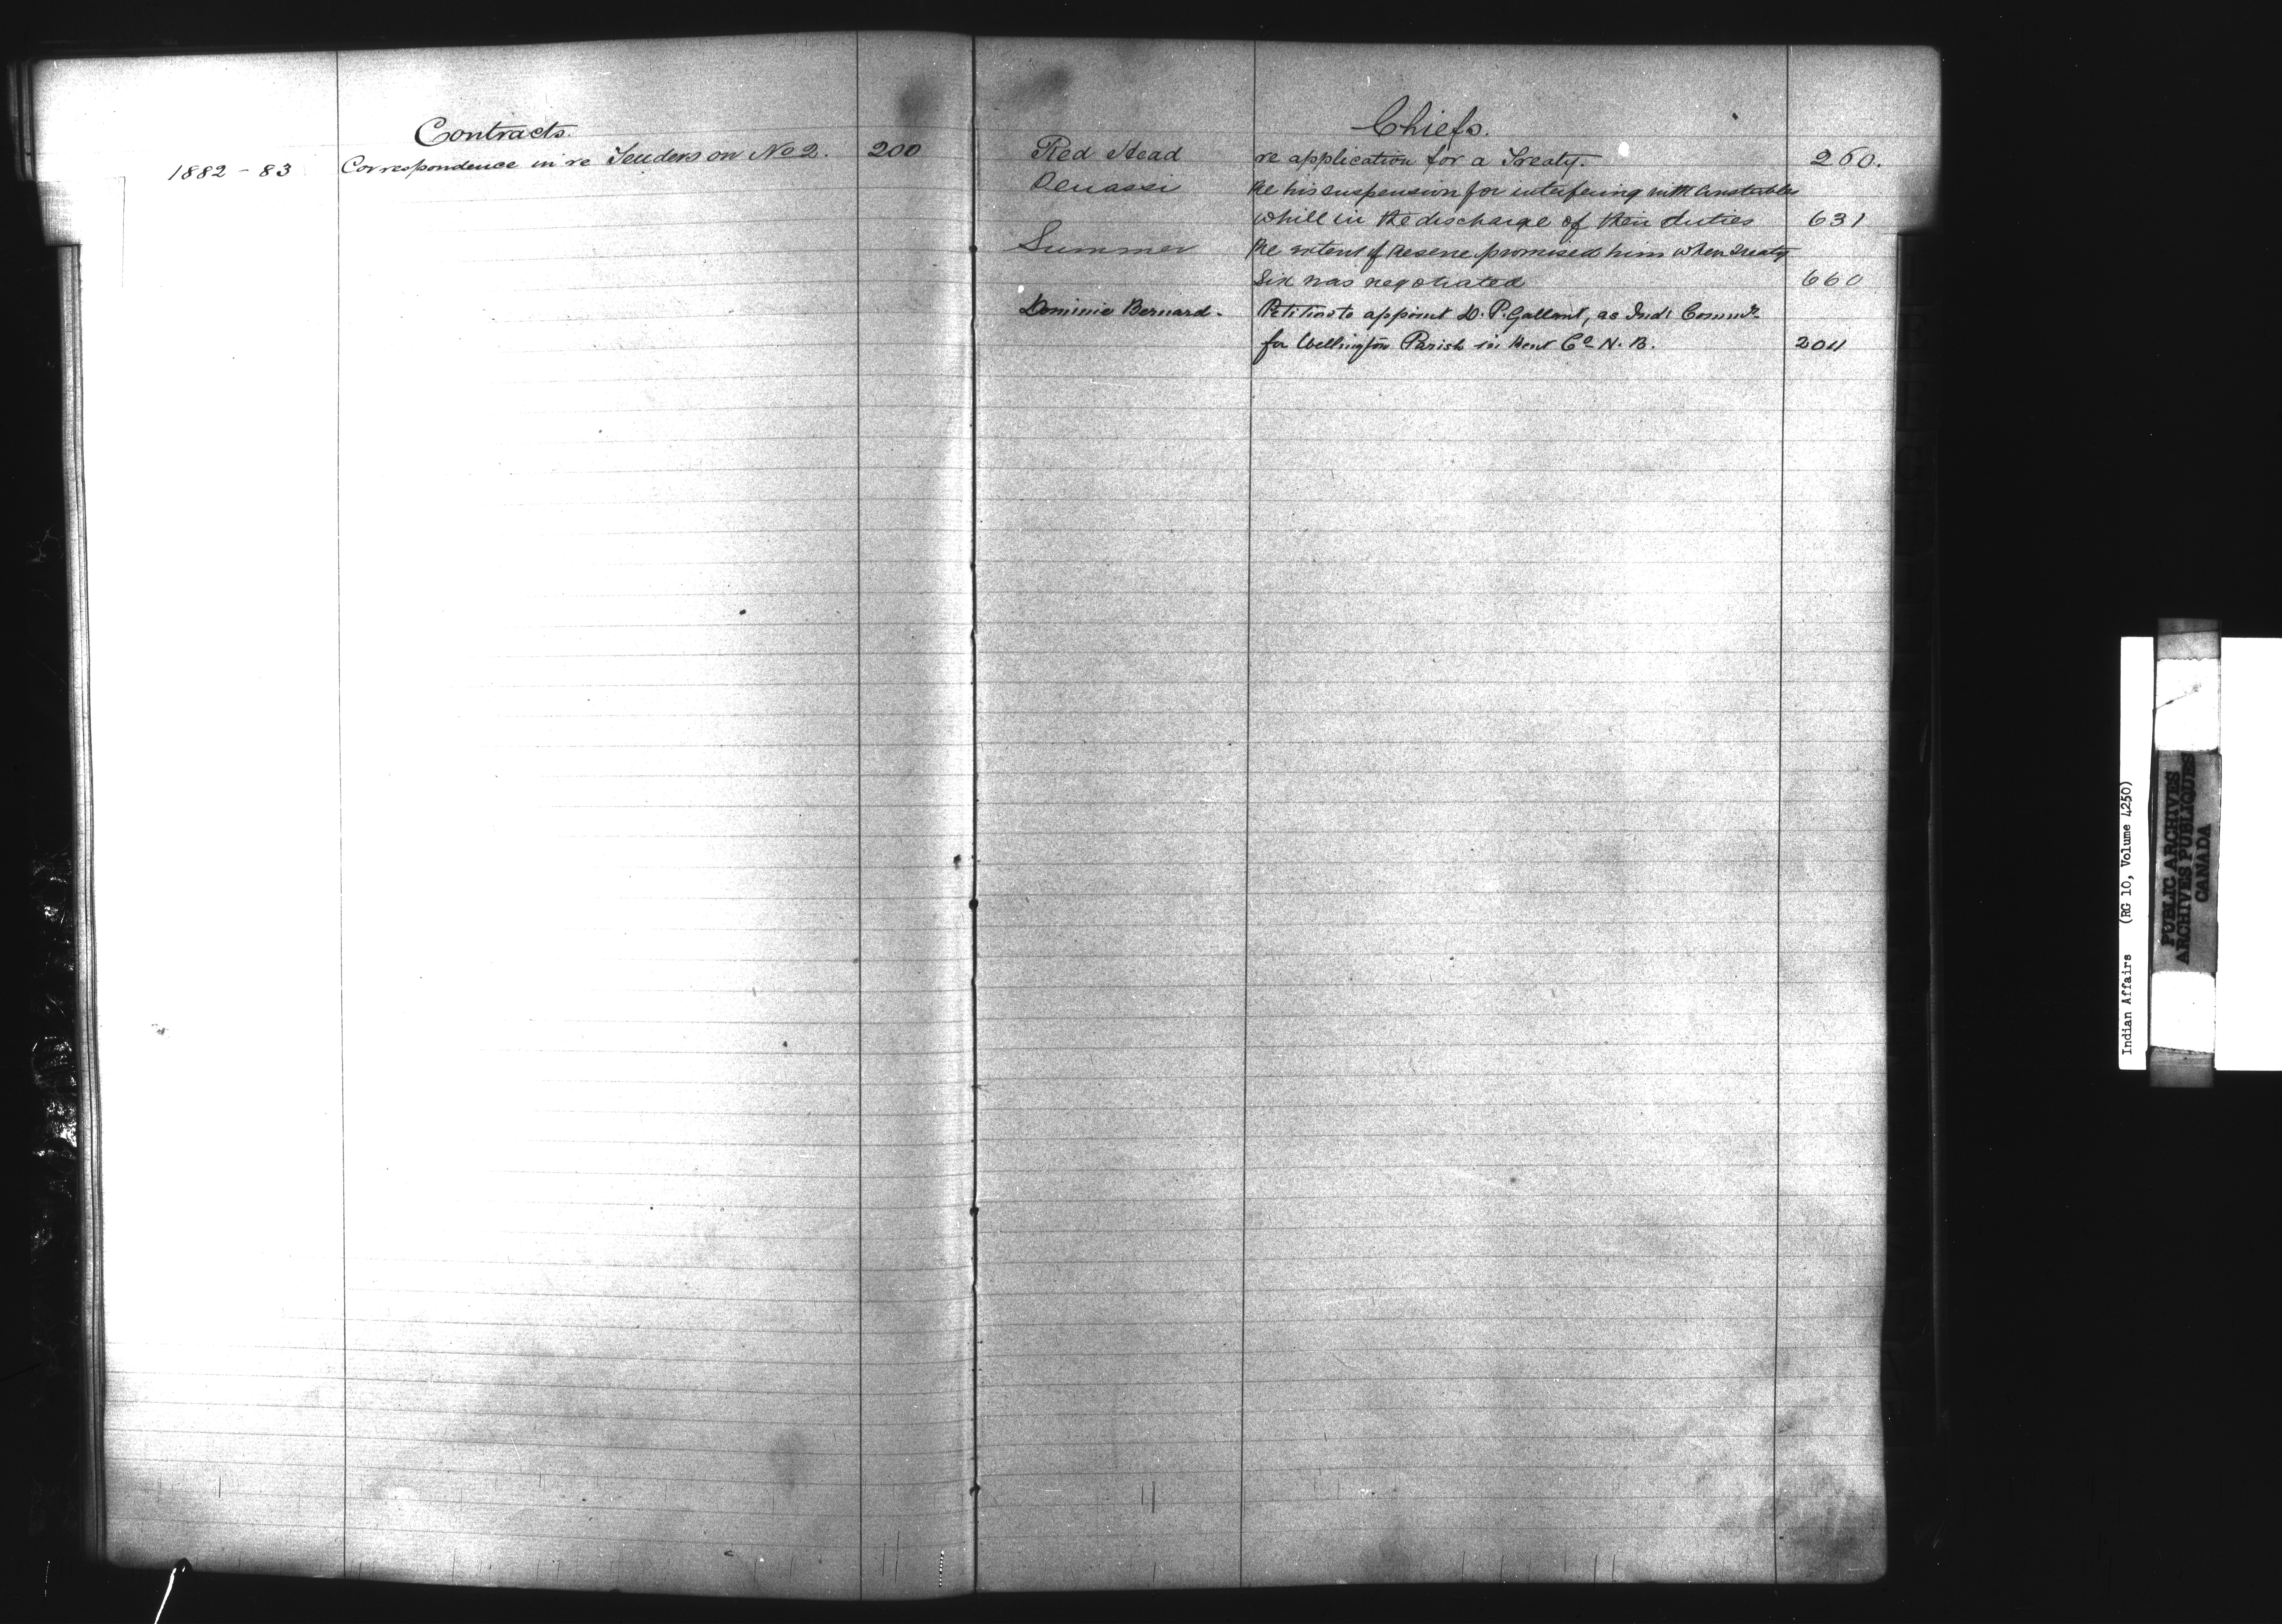 Contracts.
1882 - 83 Correspondence in re Tenders on No 2. 200
Chiefs.
Red Head re application for a Treaty. 260.
Re his suspension for interfering with Constables
while in the discharge of their duties 631
Summer Re extent of Reserve promised him when Treaty
Six was negotiated 660
Dominic Bernard. Petition to appoint D. P. Gallant, as Indn Commr
for Wellington Parish in Kent Co N. B. 2011
Indian Affairs (RG 10, Volume 4250)
PUBLIC ARCHIVES
ARCHIVES PUBLIQUES
CANADA